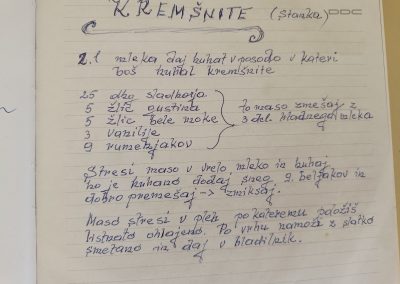 KREMŠNITE (Stanka)
2.l mleka daj kuhat v posodo v kateri
boš kuhal kremšnite
25 dkg sladkorja
5 žlic gustina
5 žlic bele moke
3 vanilije
9 rumenjakov
to maso zmešaj z
3 del. hladnega mleka
Stresi maso v vrelo mleko in kuhaj
ko je kuhano dodaj sneg 9. beljakov in
dobro premešaj -> zmiksaj.
Maso stresi v pleh po kateremu položiš
listnato ohlajeno. Po vrhu namaži z slatko
smetano in daj v hladilnik.